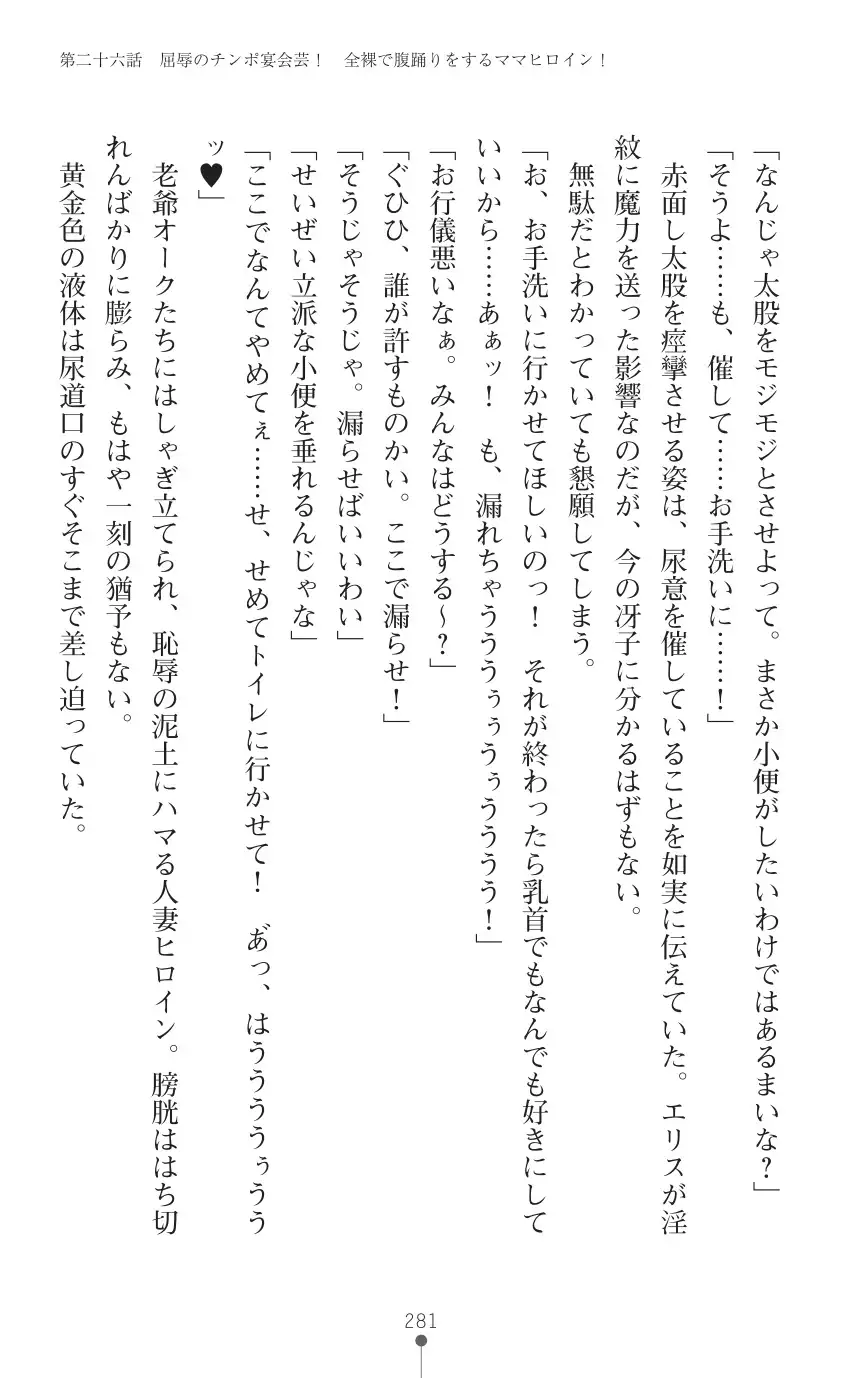 第二十六話　屈辱のチンポ宴会芸！　全裸で腹踊りをするママヒロイン！
「なんじゃ太股をモジモジとさせよって。まさか小便がしたいわけではあるまいな？」
「そうよ……も、催して……お手洗いに……！」
　赤面し太股を痙攣させる姿は、尿意を催していることを如実に伝えていた。エリスが淫
紋に魔力を送った影響なのだが、今の冴子に分かるはずもない。
　無駄だとわかっていても懇願してしまう。
「お、お手洗いに行かせてほしいのっ！　それが終わったら乳首でもなんでも好きにして
いいから……あぁッ！　も、漏れちゃうううぅぅうぅうううう！」
「お行儀悪いなぁ。みんなはどうする～？」
「ぐひひ、誰が許すものかい。ここで漏らせ！」
「そうじゃそうじゃ。漏らせばいいわい」
「せいぜい立派な小便を垂れるんじゃな」
「ここでなんてやめてぇ……せ、せめてトイレに行かせて！　あ゛っ、はううううぅうう
ッ♥」
　老爺オークたちにはしゃぎ立てられ、恥辱の泥土にハマる人妻ヒロイン。膀胱ははち切
れんばかりに膨らみ、もはや一刻の猶予もない。
　黄金色の液体は尿道口のすぐそこまで差し迫っていた。
281